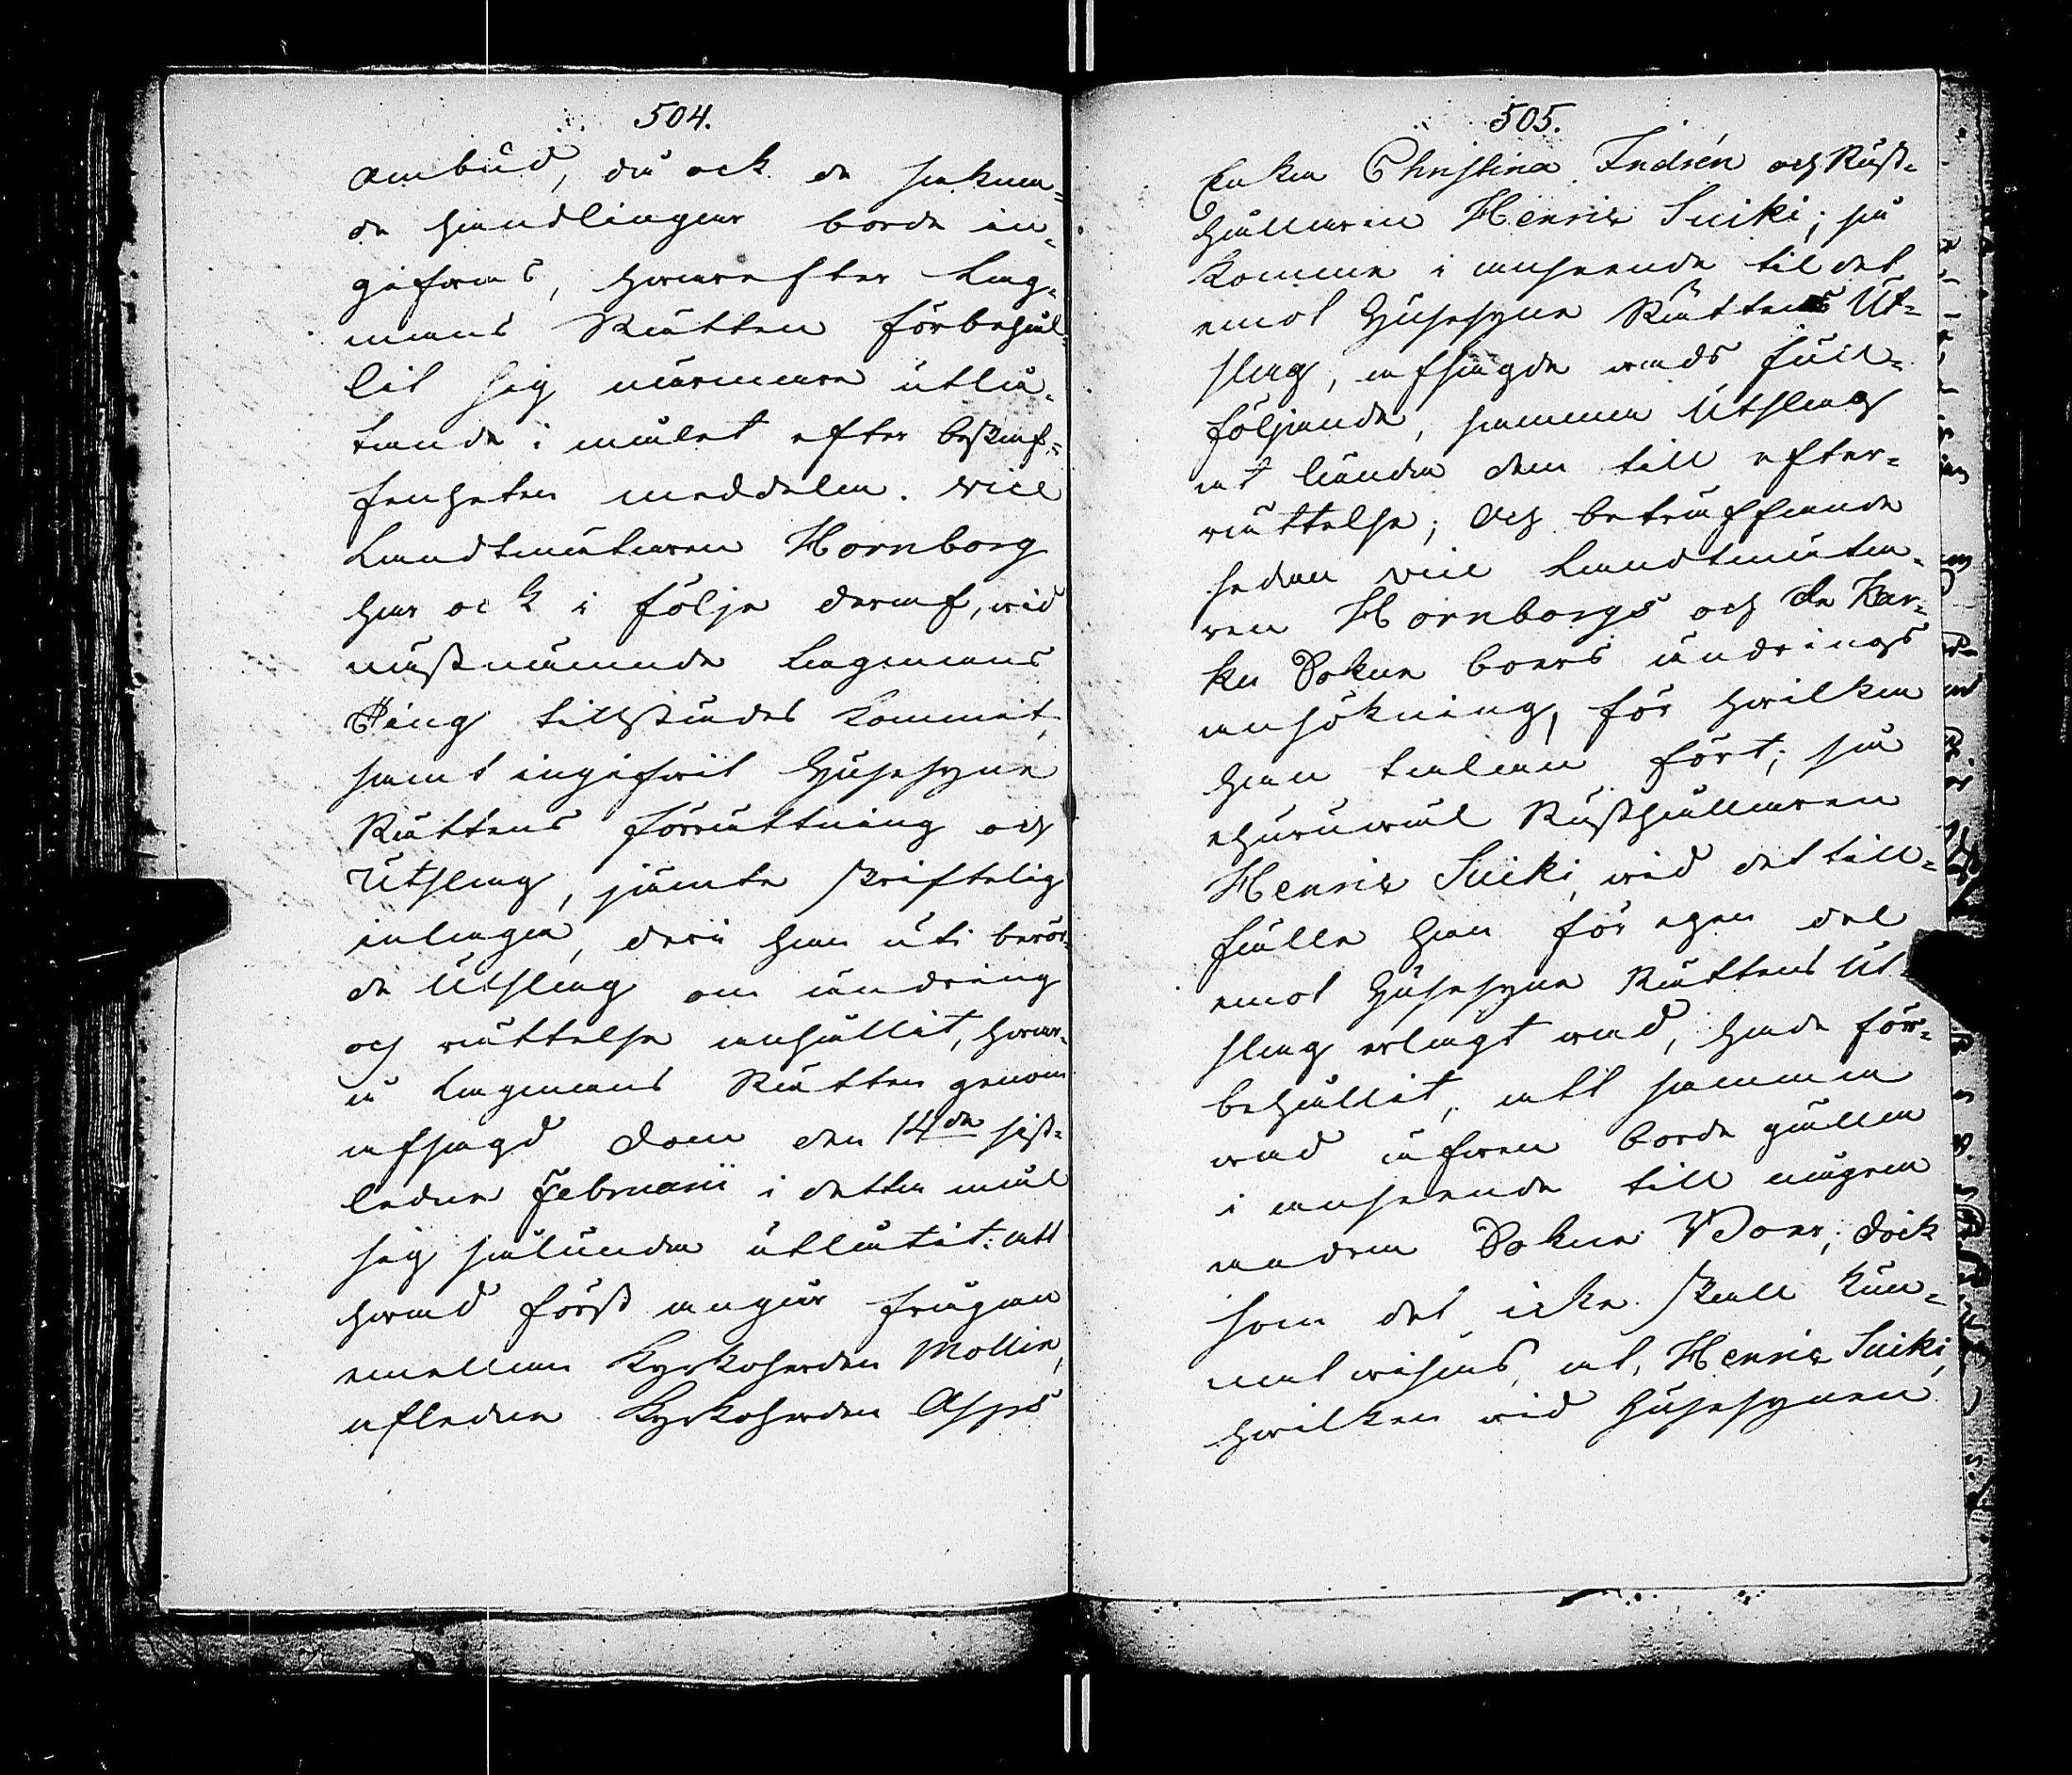 504.
ombud, då ock de sakna-
de handlingar borde in-
gifwas, hwarefter Lag-
mans Rätten förbehål-
lit sig närmare utlå-
tande i målet efter beskaf-
fenheten meddela. Vice
Landtmätaren Hornborg
har ock i följe deraf, wid
nästnämnde Lagmans
Ting tillstädes kommit,
samt ingifwit Husesyns
Rättens förrättning och
Utslag, jämte skriftelig
inlaga, deri han uti berör-
de Utslag om ändring
och rättelse anhållit, hwar-
å Lagmans Rätten genom
afsagd dom den 14de sist-
ledne Februarii i detta mål
sig sålunda utlåtit: att
hwad först angår frågan
emellan Kyrkoherden Mollin,
afledne Kyrkoherden Asps
505.
Enka Christina Indrén och Rust-
hållaren Henric Suiki; så
komme i anseende til det
emot Husesyns Rättens Ut-
slag, afsagde wads full-
följande, samma Utslag
at lända dem till efter-
rättelse; Och beträffande
sedan vice Landtmäta-
ren Hornborgs och de Kar-
ku Sokne boers ändrings
ansökning, för hwilka
han talan fört; så
ehuruwäl Rusthållaren
Henric Suiki, wid det till-
fälle han för egen del
emot Husesyns Rättens Ut-
slag erlagt wad, hade för-
behållit, att samma
wad äfwen borde gälla
i anseende till någre
andre Sokne Boer; dock
som det icke skall kun-
nat wisas, at, Henric Suiki,
hwilken wid Husesynen